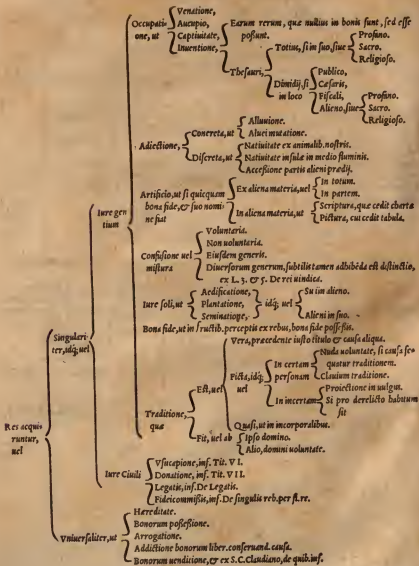 Venatione,
Occupati-
one, ut
Aucupio,
Captivitate,
Inventione,
Earum rerum, quæ nullius in bonis sunt, sed esse
possunt.
Thesauri,
Totius, si in suo, sive
Profano.
Sacro.
Religioso.
Dimidij, si
in loco
Publico,
Cæsaris,
Fiscali,
Alieno, sive
Profano.
Sacro.
Religioso.
Adiectione,
Concreta, ut
Alluvione.
Aluei mutatione.
Discreta, ut
Nativitate ex animalib. nostris.
Nativitate insulæ in medio fluminis.
Accessione partis alieni prædij.
Artificio, ut si quicquam
bona fide, & suo nomi-
ne fiat
Ex aliena materia, uel
In totum.
In partem.
In aliena materia, ut
Scriptura, quæ cedit chartæ
Pictura, cui cedit tabula.
Iure gen
tium
Confusione uel
mistura
Voluntaria.
Non uoluntaria.
Eiusdem generis.
Diuersorum generum, subtilis tamen adhibēda est distinctio,
ex L. 3. & 5. De rei uindica.
Iure soli, ut
Aedificatione,
Plantatione,
Seminatione,
idq; uel
Su in alieno.
Alieni in suo.
Bona fide, ut in fructib. perceptis ex rebus, bona fide possessis.
Traditione,
quæ
Est, uel
Vera, præcedente iusto titulo & causa aliqua.
Ficta, idq;
uel
In certam
personam
Nuda uoluntate, si causa se-
quatur traditionem.
Clauium traditione.
In incertam
Proiectione in uulgus.
Si pro derelicto habitum
sit
Quasi, ut in incorporalibus.
Fit, uel ab
Ipso domino.
Alio, domini uoluntate.
Singulari-
ter, idq; uel
Iure Ciuili
Vsucapione, inf. Tit. VI.
Donatione, inf. Tit. VII.
Legatis, inf. De Legatis.
Fideicommissis, inf. De singulis reb. per fi. re.
Res acqui
runtur,
uel
Vniuersaliter, ut
Hæreditate.
Bonorum possessione.
Arrogatione.
Addictione bonorum liber. conseruand. causa.
Bonorum uenditione, & ex S.C. Claudiano, de quib. inf.